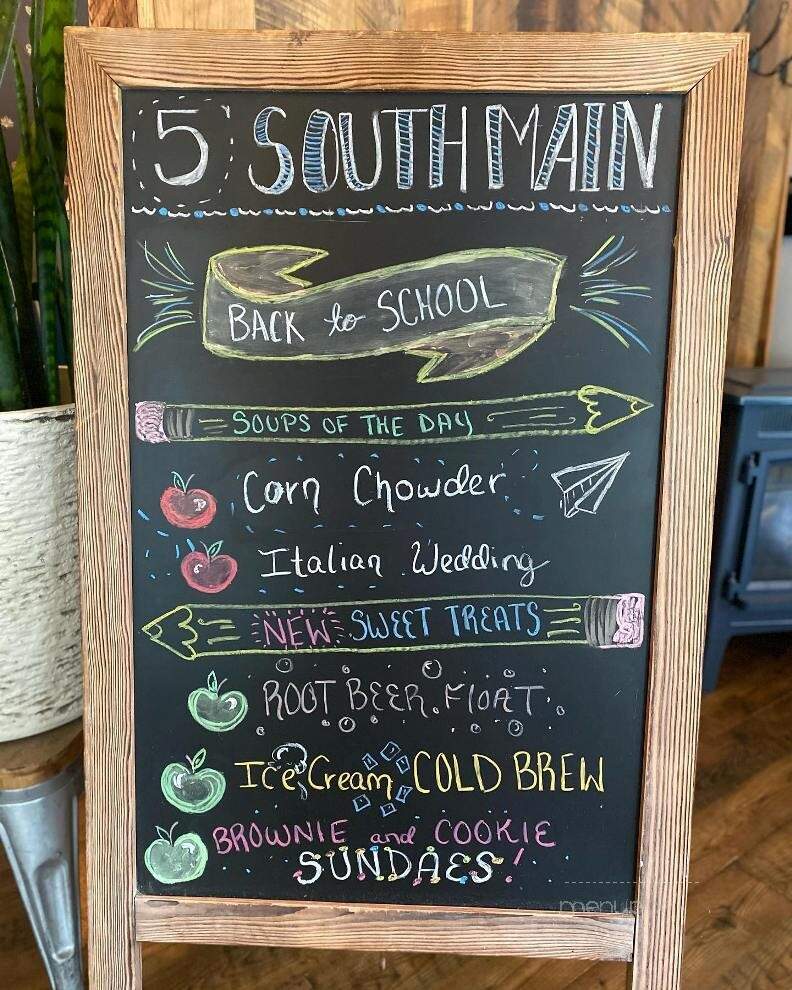 5 SOUTH MAIN
BACK to SCHOOL
SOUPS OF THE DAY
Corn Chowder
Italian Wedding
NEW SWEET TREATS
ROOT BEER FLOAT
Ice Cream COLD BREW
BROWNIE and COOKIE
SUNDAES!